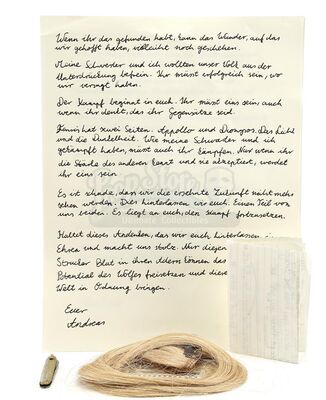 Wenn ihr das gefunden habt, kann das Wunder, auf das
wir gehofft haben, vielleicht noch geschehen.
Meine Schwester und ich wollten unser Volk aus der
Unterdrückung befrein. Ihr müsst erfolgreich sein, wo
wir versagt haben.
Der Kampf beginnt in euch. Ihr müsst eins sein, auch
wenn ihr denkt, dass ihr Gegensätze seid.
hat zwei Seiten. Apollo und Dionysos. Das Licht
und die Dunkelheit. Wie meine Schwester und ich
gekämpft haben, müsst auch ihr kämpfen. Nur wenn ihr
die Stärke des anderen kennt und sie akzeptiert, werdet
ihr eins sein.
Es ist schade, dass wir die ersehnte Zukunft nicht mehr
sehen werden. Dies hinterlassen wir euch. Einen Teil von
uns beiden. Es liegt an euch, den Kampf fortzusetzen.
Haltet dieses Andenken, das wir euch hinterlassen, in
Ehren und macht uns stolz. Nur diejen
Strucker Blut in ihren Adern können das
Potential des Wolfes freisetzen und diese
Welt in Ordnung bringen.
Euer
Andreas